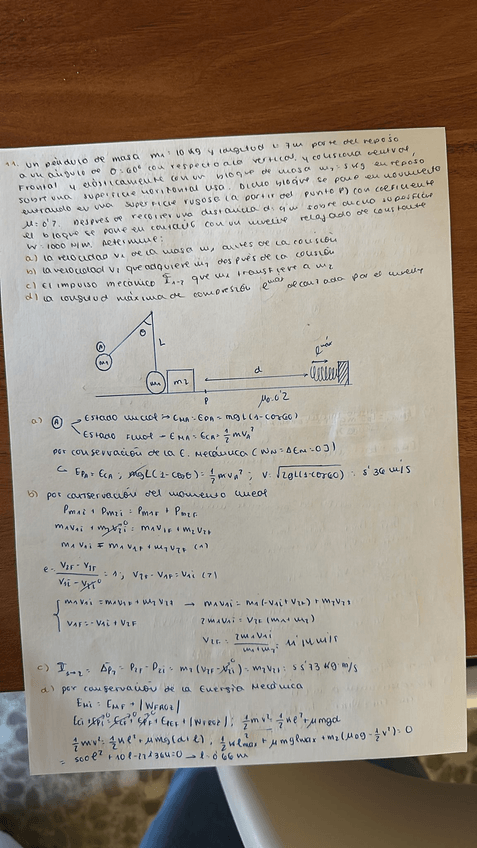 11. un péndulo de masa m₁: 10 Kg y longitud L: 7m parte del reposo
a un ángulo de θ: 60º con respecto a la vertical y colisiona central,
frontal y elásticamente con un bloque de masa m₂: 5 Kg en reposo
sobre una superficie horizontal lisa. Dicho bloque se pone en movimiento
entrando en una superficie rugosa (a partir del punto P) con coeficiente
μ: 0'2. Después de recorrer una distancia d: sobre dicha superficie
el bloque se pone en contacto con un muelle relajado de constante
K: 1000 N/m. Determine:
a) la velocidad v₁ de la masa m₁ antes de la colisión
b) la velocidad v₂ que adquiere m₂ después de la colisión
c) el impulso mecánico I₁→₂ que m₁ transfiere a m₂
d) la longitud máxima de compresión ℓmáx alcanzada por el muelle
A θ L ℓmáx
m₁ m₁ m2 d
P μ: 0.'2
a) A → Estado inicial → EMA = EPA = mgL(1-cos60)
→ Estado Final → EMA = ECA = ½ mvA²
por conservación de la E. Mecánica (WN = ΔEM = 0J)
↳ EPA = ECA ; mgL(1-cosθ) = ½ mvA² ; V: √2gL(1-cos60) : m/s
b) por conservación del momento lineal
Pm1i + Pm2i = P m1F + P m2F
m1v1i + m2v2i⁰ = m1v1F + m2v2F
m1v1i = m1v1F + m2v2F (1)
e: V2F - V1F / V1i - V2i⁰ = 1 ; V2F - V1F = V1i (2)
m1v1i = m1v1F + m2v2F → m1v1i = m1(-v1i + v2F) + m2v2F
v1F = -v1i + v2F 2m1v1i = v2F (m1 + m2)
V2F = 2m1v1i / m1+m2 : 11'14 m/s
c) I1→2 = ΔP2 = P2F - P2i = m2 (v2F - v2i⁰) = m2v2F : 55'73 Kg·m/s
d) por conservación de la Energía Mecánica
EMi = EMF + |WFROZ|
½ mv² = ½ Kℓ² + μmgd
½ mv² = ½ Kℓ² + μmg(d+ℓ) ; ½ Kℓ²max + μmgℓmax + m2 (μdg - ½ v²) = 0
= 500ℓ² + 10ℓ = 0 → ℓ: 0'66 m